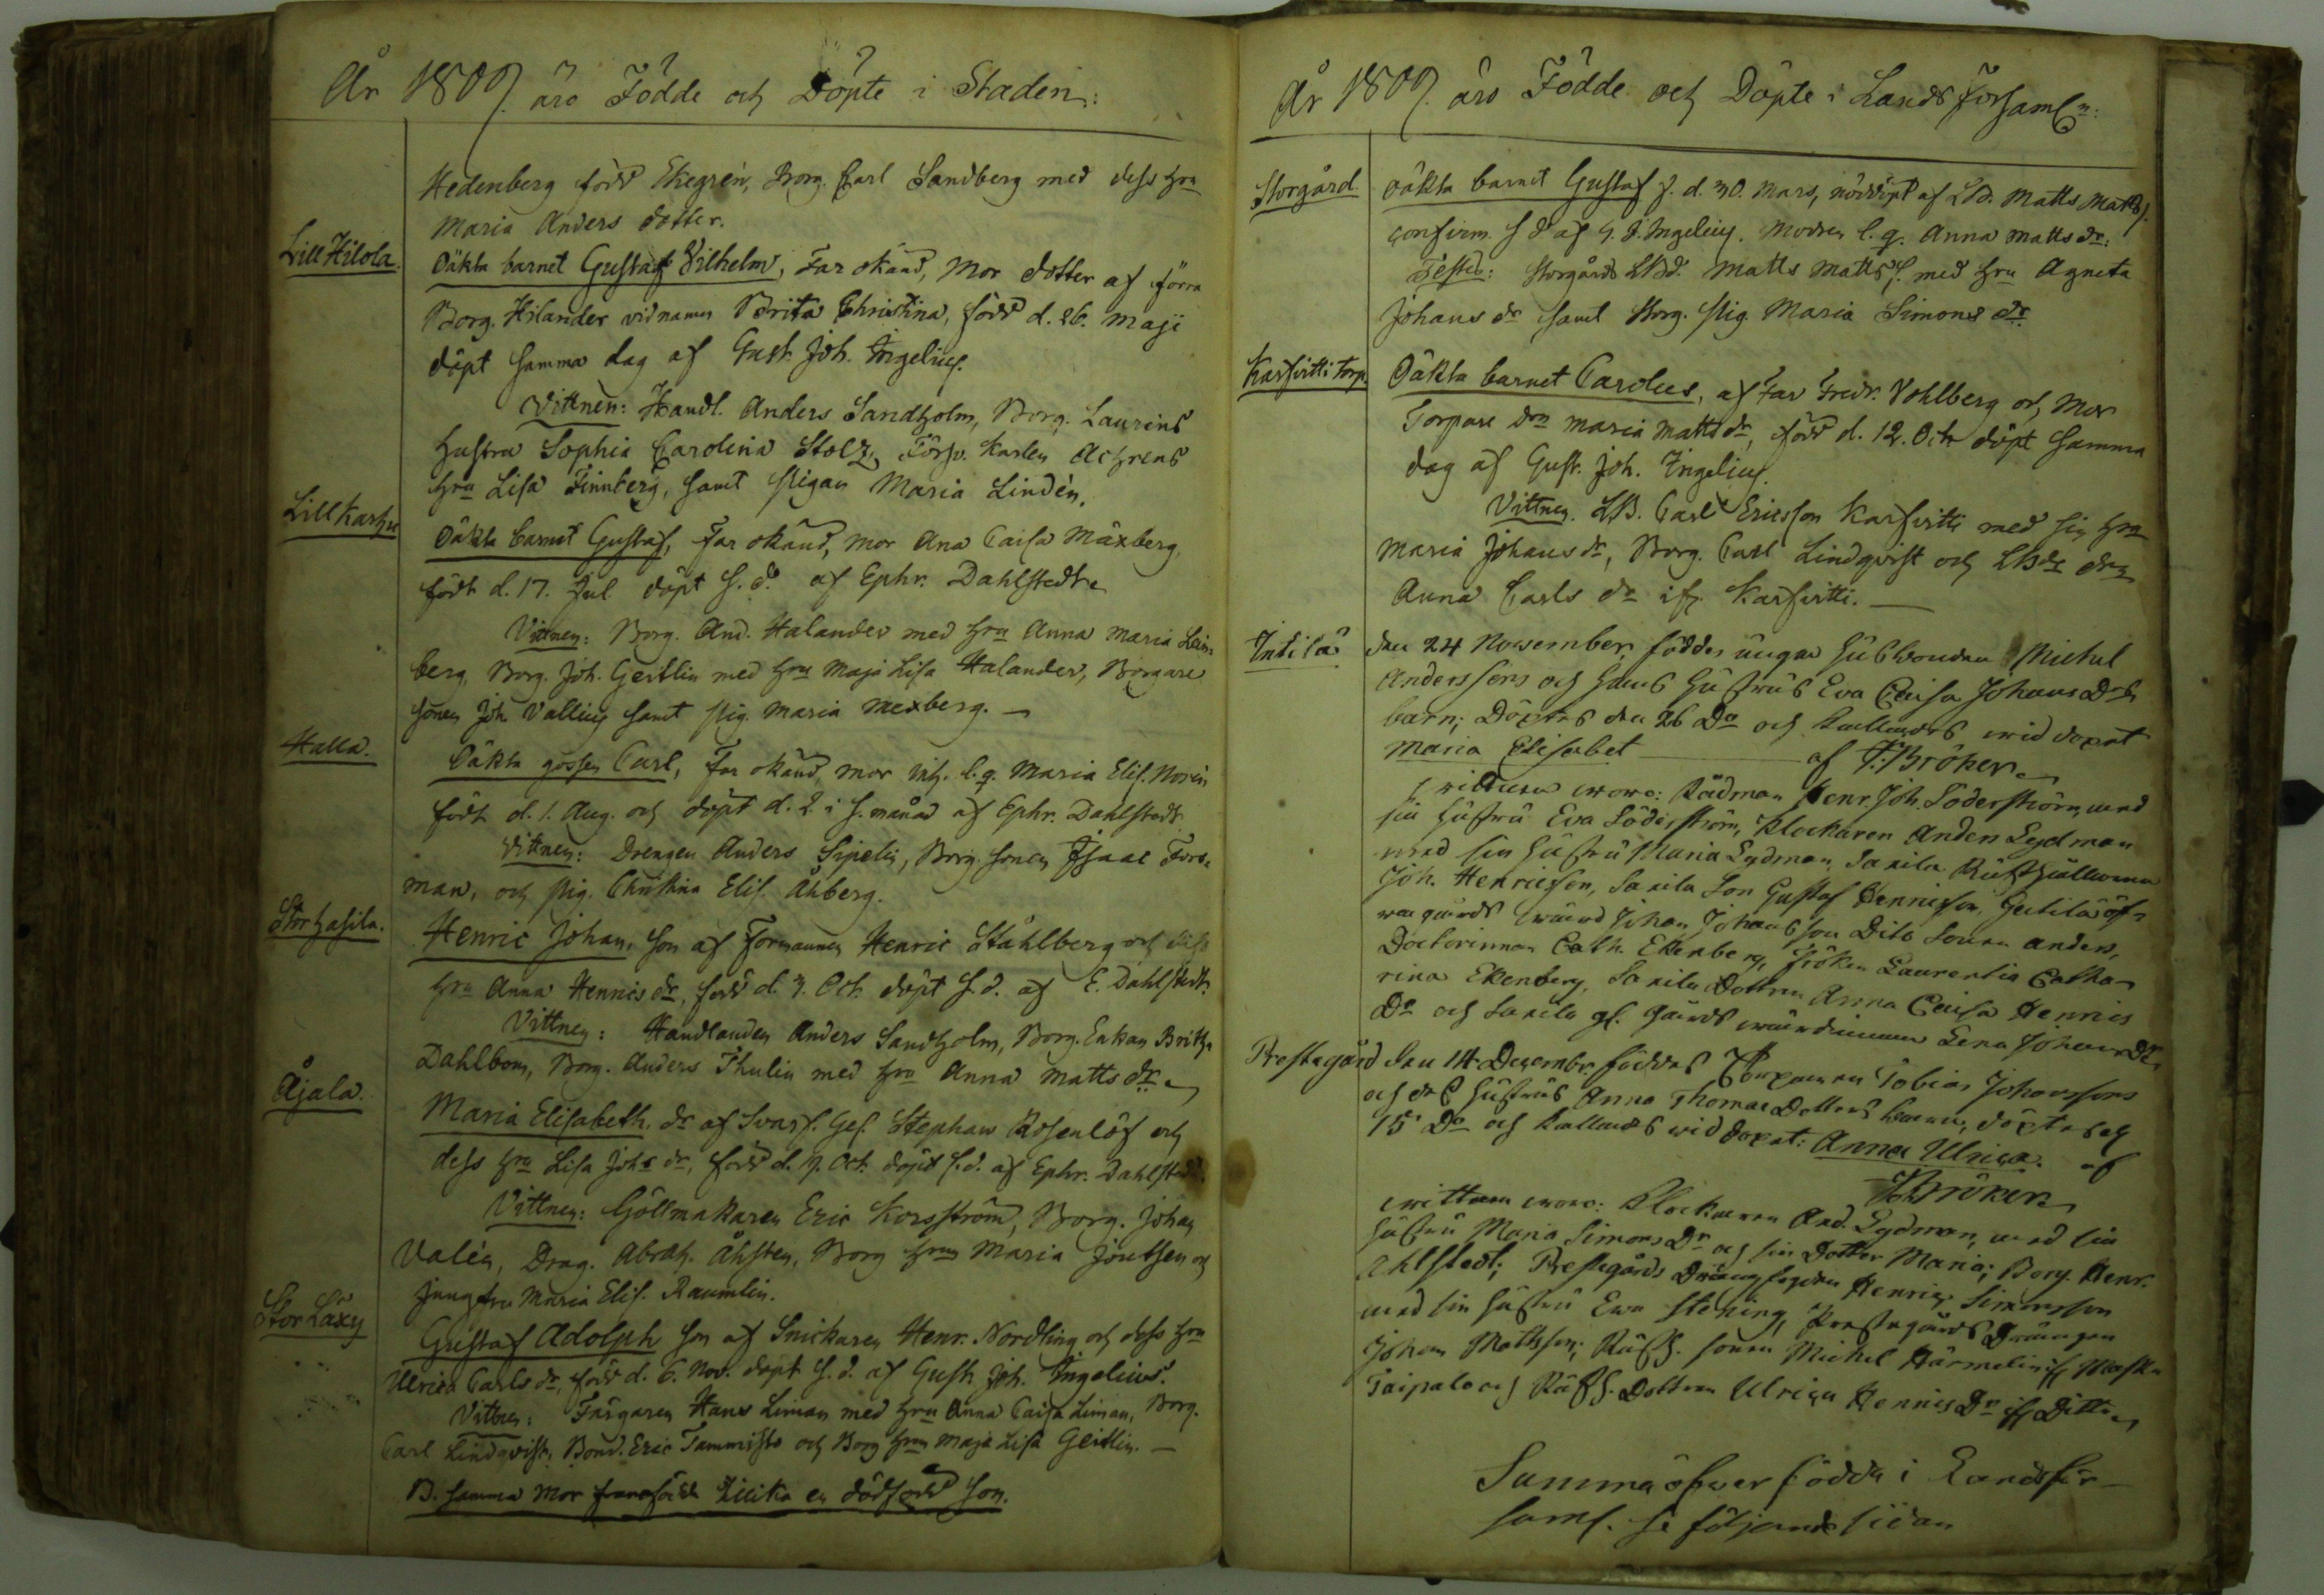 År 1809. äro Födde och Döpte i Staden:
Hedenberg född Ekegrén, Borg. Carl Sandberg med dess hru
Maria Anders dotter.
Lill Hilola.
Oäkta barnet Gustaf Vilhelm, Far okänd, Mor dotter af förra
Borg. Hilander vid namn Brita Christina, född d. 26. Maji
döpt samma dag af Gust. Joh. Ingelius.
Vittnen: Handl. Anders Sandholm, Borg. Laurens
hustru Sophia Carolina Stolz, Förgv. Karlen Achrens
hru Lisa Finnberg, samt pigan Maria Lindén.
Lill Karhu
Oäkta barnet Gustaf, Far okänd, mor Ana Caisa Mäxberg,
född d. 17. Jul. döpt s. d. af Ephr. Dahlstedt
Vittnen: Borg. And. Halander med hru Anna Maria Lein-
berg, Borg. Joh. Geitlin med hru Maja Lisa Halander, Borgare
sonen Joh. Vallius samt pig. Maria Mexberg. —
Halla.
Oäkta gossen Carl, Far okänd, mor inh. l. q. Maria Elis. Norén
född d. 1. Aug. och döpt d. 2 i s. månad af Ephr. Dahlstedt
Vittnen: Drengen Anders Sipelis, Borg. sonen Isaac Fors-
man, och pig. Christina Elis. Åhberg.
Stor hasila.
Henric Johan, son af Formannen Henric Ståhlberg och dess
hru Anna Hennics dr, född d. 3. Oct. döpt s. d. af E. Dahlstedt.
Vittnen: Handlanden Anders Sandholm, Borg. Enkan Britha
Dahlbom, Borg. Anders Thulin med hru Anna Matts dr
Äjala.
Maria Elisabeth, dr af Svarf. Ges. Stephan Rosenlöf och
dess hru Lisa Johs dr, född d. 9. Oct. döpt s. d. af Ephr. Dahlstedt.
Vittnen: Göllmakaren Eric Korsström, Borg. Johan
Valén, Drag. Abrah. Åhsten, Borg hrun Maria Joutsen och
jungfru Maria Elis. Raumlin.
Stor Läxy
Gustaf Adolph son af Snickaren Henr. Nordling och dess hru
Ulrica Carls dr, född d. 6. Nov. döpt s. d. af Gust. Joh. Ingelius.
Vittnen: Färgaren Hans Liman med hru Anna Caisa Liman, Borg.
Carl Lindqvist, Bond. Eric Tammisto och Borg hrun Maja Lisa Geitlin. —
B. samma mor framfödde en dödfödd son.
År 1809. äro Födde och Döpte i Lands församln:
Storgård.
Oäkta barnet Gustaf f. d. 30. Mars, nöddöpt af LBd. Matts Matts.
confirm. s d af G. J. Ingelius. Modren l. q. Anna Matts dr:
Testes: Storgårds LBd. Matts Matts. med hru Agneta
Johans dr samt Storg. pig. Maria Simons dr.
Karsvitti torp.
Oäkta barnet Carolus, af Far Fredr. Vohlberg och Mor
Torpare drn Maria Matts dr, född d. 12. Octr döpt samma
dag af Gust. Joh. Ingelius.
Vittnen. LB. Carl Ericsson Karsvitti med sin hru
Maria Johans dr, Borg. Carl Lindqvist och LBdr drn
Anna Carls dr ifr. Karsvitti. —
Intilä
den 24 November föddes unga husbonden Michel
Anderssons och hans hustrus Eva Caisa Johans Drs
barn; Döptes den 26 Do och kallades wid dopet
Maria Elisabet af F. Bröker
wittnen woro: Rådman Henr. Joh. Söderström, med
sin hustru Eva Söderström, Klockaren Anders Lydman
med sin hustru Maria Lydman, Sarila Rusthållaren
Joh. Henricsson, Sarila Son Gustaf Hennicsson, Gutilä öf-
wergårds wärd Johan Johansson Dito Sonen Anders,
Doctorinnan Cath. Ekenberg, Fröken Laurentia Catha-
rina Ekenberg, Sarila Dottren Anna Caisa Hennics
Dr och Sarila gl. gårds wärdinnan Lena Johans Dr
Prestegård
den 14 Decembr. föddes Torparen Tobias Johanssons
och des hustrus Anna Thomae Dotters barn, döptes den
15 Do och kallades wid dopet: Anna Ulrica. af
F. Bröker
wittnen woro: Klockaren And. Lydman, med sin
hustru Maria Simons Dr och sin Dotter Maria; Borg. Henr.
Ahlstedt; Prestegårds Drängfogden Henric Simonsson
med sin hustru Ewa Stening, Prestegårds Drängen
Johan Mattsson; Rusth. sonen Michel Härmelin if Maska
Taipale och Rusth. Dottren Ulrica Hennics Dr if Ditto
Summa öfwer födda i Landsför-
saml. se följande sidan